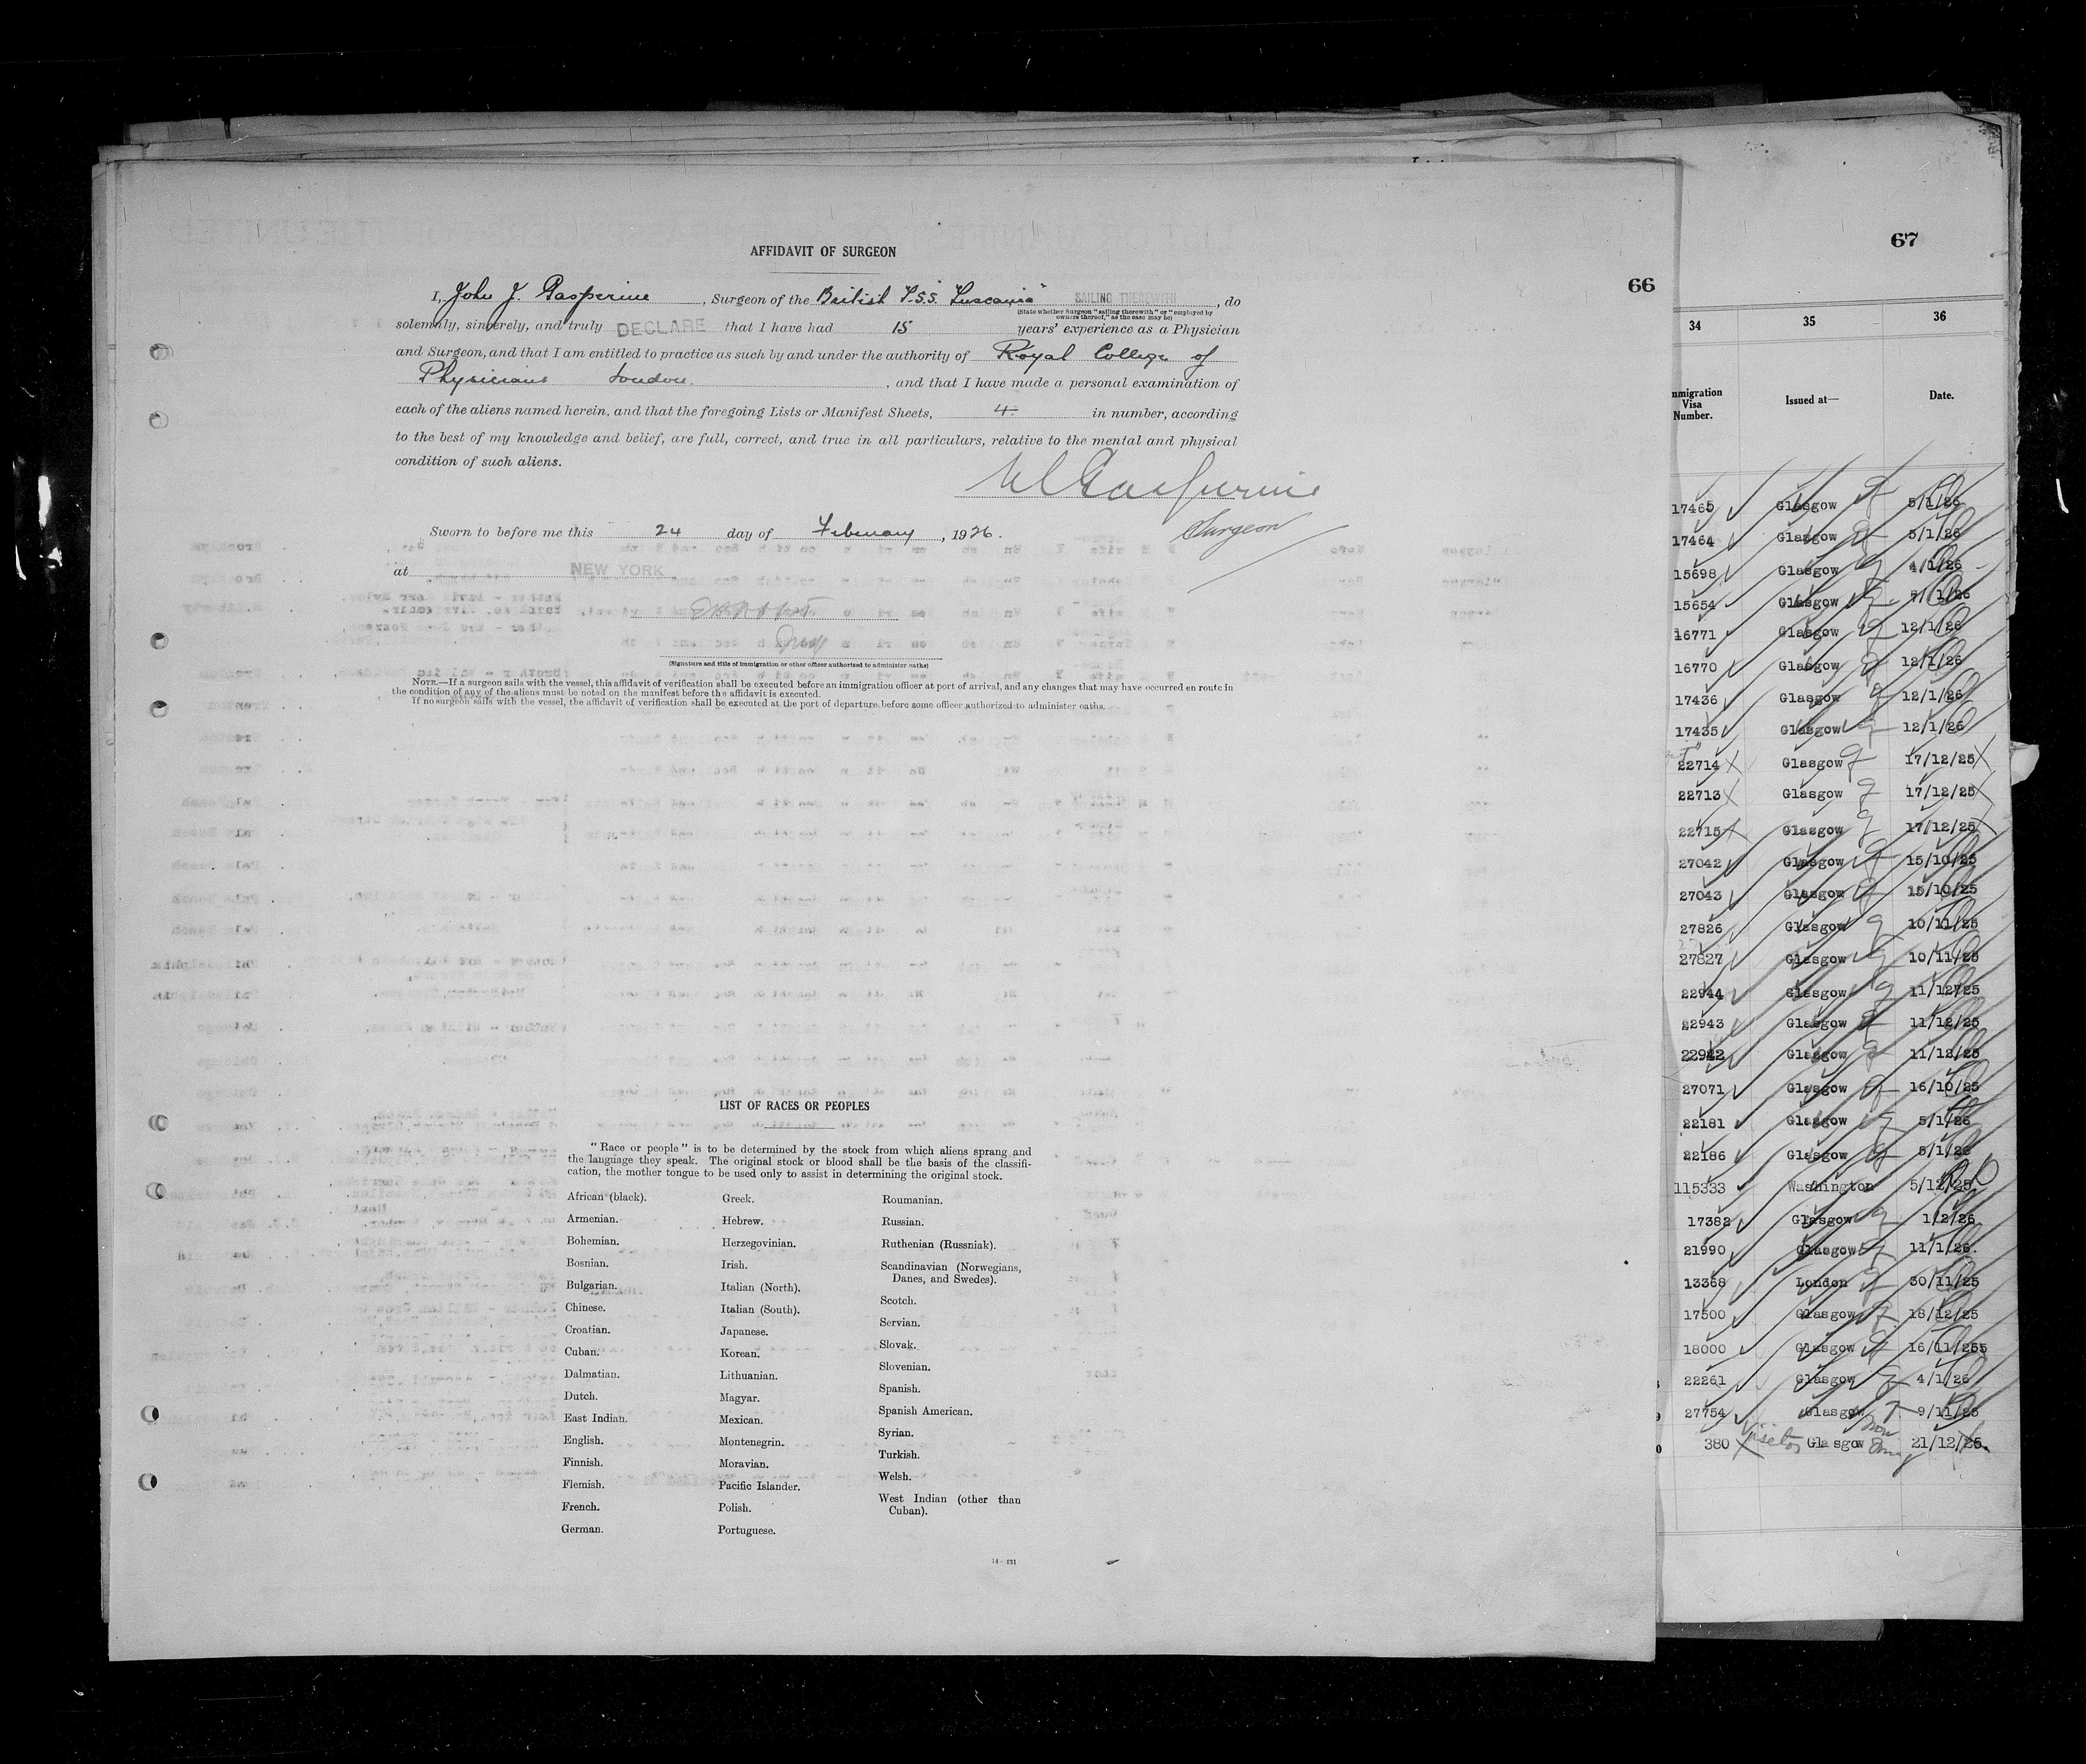 AFFIDAVIT OF SURGEON
66
I, John J. Gasperine, Surgeon of the British T.S.S. "Tuscania" SAILING THEREWITH, do
(State whether Surgeon "sailing therewith" or "employed by
owners thereof," as the case may be)
solemnly, sincerely, and truly DECLARE that I have had 15 years' experience as a Physician
and Surgeon, and that I am entitled to practice as such by and under the authority of Royal College of
Physicians London, and that I have made a personal examination of
each of the aliens named herein, and that the foregoing Lists or Manifest Sheets, 4 in number, according
to the best of my knowledge and belief, are full, correct, and true in all particulars, relative to the mental and physical
condition of such aliens.
Surgeon
Sworn to before me this 24 day of February, 1926.
at NEW YORK
(Signature and title of immigration or other officer authorized to administer oaths)
NOTE.—If a surgeon sails with the vessel, this affidavit of verification shall be executed before an immigration officer at port of arrival, and any changes that may have occurred en route in
the condition of any of the aliens must be noted on the manifest before the affidavit is executed.
If no surgeon sails with the vessel, the affidavit of verification shall be executed at the port of departure before some officer authorized to administer oaths.
LIST OF RACES OR PEOPLES
"Race or people" is to be determined by the stock from which aliens sprang and
the language they speak. The original stock or blood shall be the basis of the classifi-
cation, the mother tongue to be used only to assist in determining the original stock.
African (black).
Armenian.
Bohemian.
Bosnian.
Bulgarian.
Chinese.
Croatian.
Cuban.
Dalmatian.
Dutch.
East Indian.
English.
Finnish.
Flemish.
French.
German.
Greek.
Hebrew.
Herzegovinian.
Irish.
Italian (North).
Italian (South).
Japanese.
Korean.
Lithuanian.
Magyar.
Mexican.
Montenegrin.
Moravian.
Pacific Islander.
Polish.
Portuguese.
Roumanian.
Russian.
Ruthenian (Russniak).
Scandinavian (Norwegians,
Danes, and Swedes).
Scotch.
Servian.
Slovak.
Slovenian.
Spanish.
Spanish American.
Syrian.
Turkish.
Welsh.
West Indian (other than
Cuban).
14-431
67
34 35 36
mmigration
Visa
Number.
Issued at—
Date.
17465 Glasgow 5/1/26
17464 Glasgow 5/1/26
15698 Glasgow 4/1/26
15654 Glasgow 7/1/26
16771 Glasgow 12/1/26
16770 Glasgow 12/1/26
17436 Glasgow 12/1/26
17435 Glasgow 12/1/26
22714 Glasgow 17/12/25
22713 Glasgow 17/12/25
22715 Glasgow 17/12/25
27042 Glasgow 15/10/25
27043 Glasgow 15/10/25
27826 Glasgow 10/11/25
27827 Glasgow 10/11/25
22944 Glasgow 11/12/25
22943 Glasgow 11/12/25
22942 Glasgow 11/12/25
27071 Glasgow 16/10/25
22181 Glasgow 5/1/26
22186 Glasgow 5/1/26
115333 Washington 5/12/25
17382 Glasgow 1/2/26
21990 Glasgow 11/1/26.
13368 London 30/11/25
17500 Glasgow 18/12/25
18000 Glasgow 16/11/255
22261 Glasgow 4/1/26
27754 Glasgow 9/11/25
380 Visitor Glasgow 21/12/25.